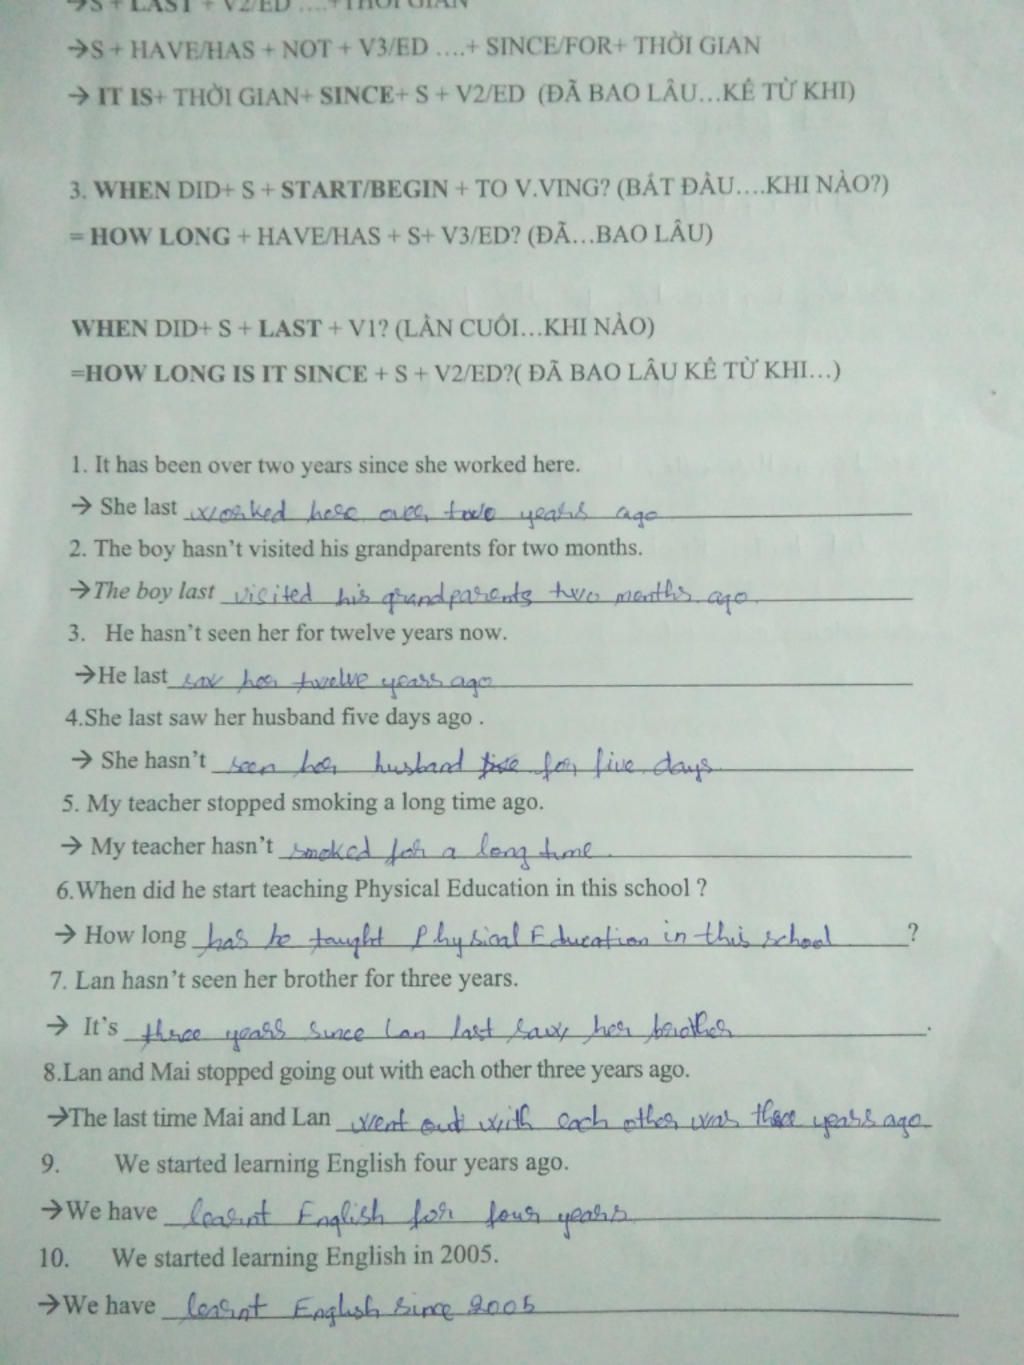 →S + LAST + V2/ED ....+THỜI GIAN
→S + HAVE/HAS + NOT + V3/ED ....+ SINCE/FOR+ THỜI GIAN
→ IT IS+ THỜI GIAN+ SINCE+ S + V2/ED (ĐÃ BAO LÂU...KỂ TỪ KHI)
3. WHEN DID+ S + START/BEGIN + TO V.VING? (BẮT ĐẦU....KHI NÀO?)
= HOW LONG + HAVE/HAS + S+ V3/ED? (ĐÃ...BAO LÂU)
WHEN DID+ S + LAST + V1? (LẦN CUỐI...KHI NÀO)
=HOW LONG IS IT SINCE + S + V2/ED?( ĐÃ BAO LÂU KỂ TỪ KHI...)
1. It has been over two years since she worked here.
→ She last worked here over two years ago
2. The boy hasn't visited his grandparents for two months.
→The boy last visited his grandparents two months ago.
3. He hasn't seen her for twelve years now.
→He last saw her twelve years ago
4.She last saw her husband five days ago .
→ She hasn't seen her husband for five days
5. My teacher stopped smoking a long time ago.
→ My teacher hasn't smoked for a long time.
6.When did he start teaching Physical Education in this school ?
→ How long has he taught Physical Education in this school ?
7. Lan hasn't seen her brother for three years.
→ It's three years since Lan last saw her brother .
8.Lan and Mai stopped going out with each other three years ago.
→The last time Mai and Lan went out with each other was three years ago
9. We started learning English four years ago.
→We have learnt English for four years
10. We started learning English in 2005.
→We have learnt English since 2005